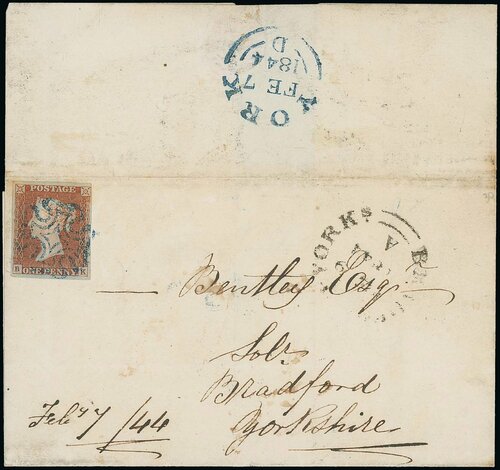 YORK
FE 7
1844
D
POSTAGE
B ONE PENNY K
YORKS
A
— Bentley Esq
Solr
Bradford
Yorkshire
Feby 7/44